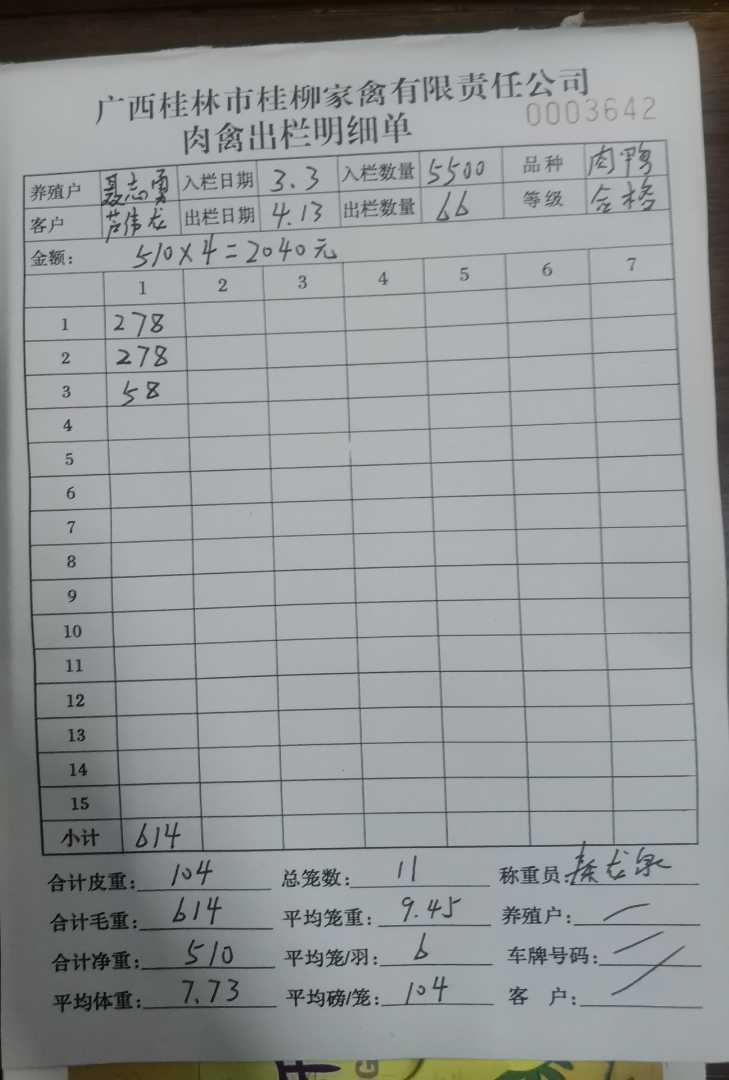 广西桂林市桂柳家禽有限责任公司
肉禽出栏明细单 0003642
养殖户 聂志勇 入栏日期 3.3 入栏数量 5500 品种 肉鸭
客户 芦伟龙 出栏日期 4.13 出栏数量 66 等级 合格
金额: 510×4=2040元
1 2 3 4 5 6 7
1 278
2 278
3 58
4
5
6
7
8
9
10
11
12
13
14
15
小计 614
合计皮重: 104 总笼数: 11 称重员
合计毛重: 614 平均笼重: 9.45 养殖户:
合计净重: 510 平均笼/羽: 6 车牌号码:
平均体重: 7.73 平均磅/笼: 104 客 户: